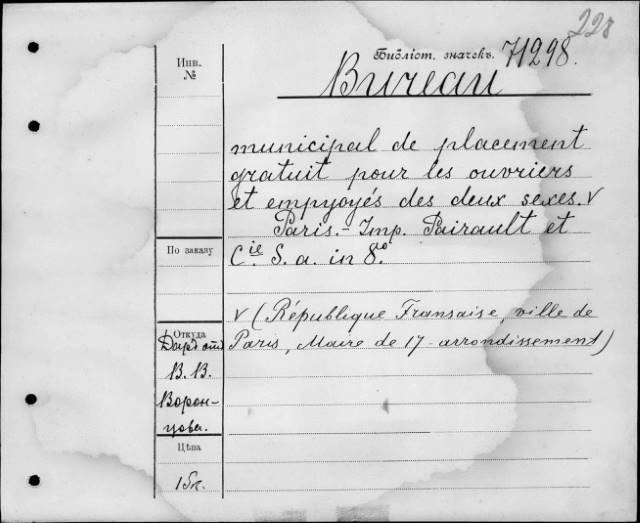 228
Библіот. значекъ. 71298.
Инв.
№
Bureau
municipal de placement
gratuit pour les ouvriers
et empyoyés des deux sexes. V
Paris. - Imp. Pairault et
По заказу
Cie. S. a. in 8°.
V (République Fransaise, ville de
Paris, Maire de 17 arrondissement)
Откуда
В. В.
Ворон-
цова.
Цѣна
15к.